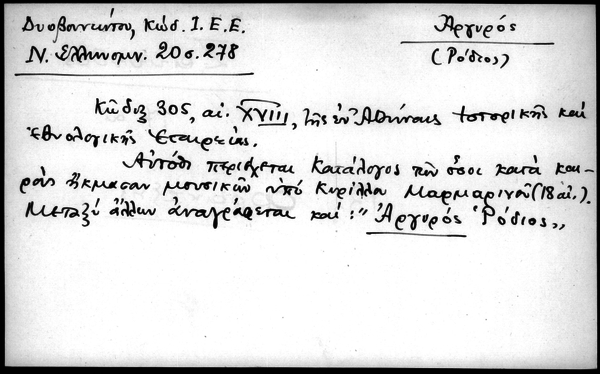 Δυοβουνιώτου, Κώδ. Ι. Ε. Ε.
Ν. Ελληνομν. 20 σ. 278
Ἀργυρός
(Ρόδιος)
Κῶδιξ 305, αἰ. XVIII, τῆς ἐν Ἀθήναις Ἱστορικῆς καὶ
Ἐθνολογικῆς Ἑταιρείας.
Αὐτόθι περιέχεται Κατάλογος τῶν ὅσοι κατὰ και-
ροὺς ἤκμασαν μουσικῶν ὑπὸ Κυρίλλου Μαρμαρινοῦ (18 αἰ.).
Μεταξὺ ἄλλων ἀναγράφεται καὶ: "Ἀργυρός Ῥόδιος„